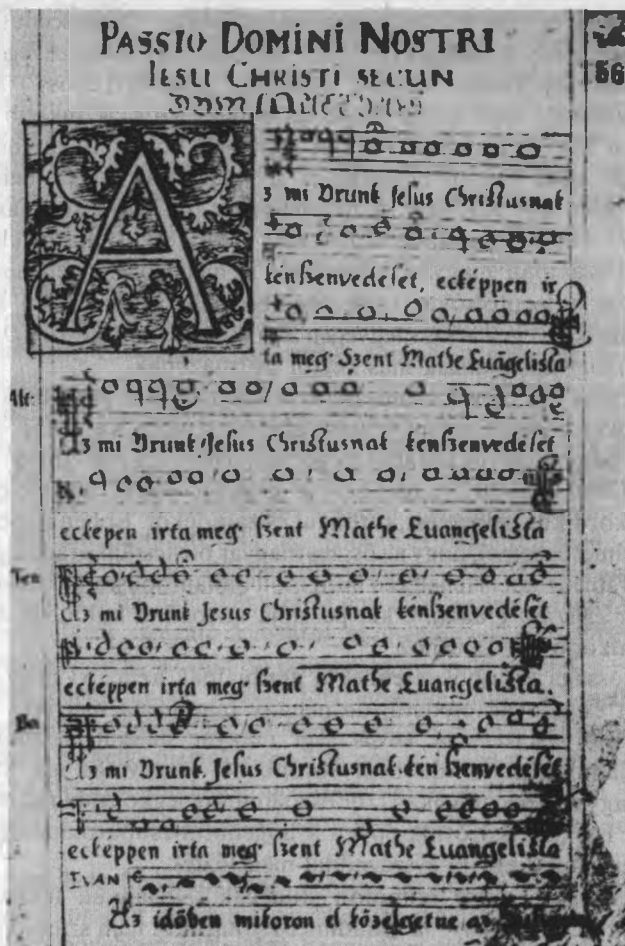 PASSIO DOMINI NOSTRI
IESU CHRISTI SECUN
DUM
56
A
z mi Vrunk Jesus Christusnak
kénszenvedeset, ecképpen ir
ta meg Szent Mathe Euãgelista
Alt:
Az mi Vrunk Jesus Christusnak kenszenvedeset
eckepen irta meg szent Mathe Euangelista
Ten
Az mi Vrunk Jesus Christusnak kénszenvedését
ecképpen irta meg szent Mathe Euangelista.
Ba
Az mi Vrunk Jesus Christusnak kén szenvedését
ecképpen irta meg szent Mathe Euangelista
EVAN
Az idöben mikoron el közelgetne az